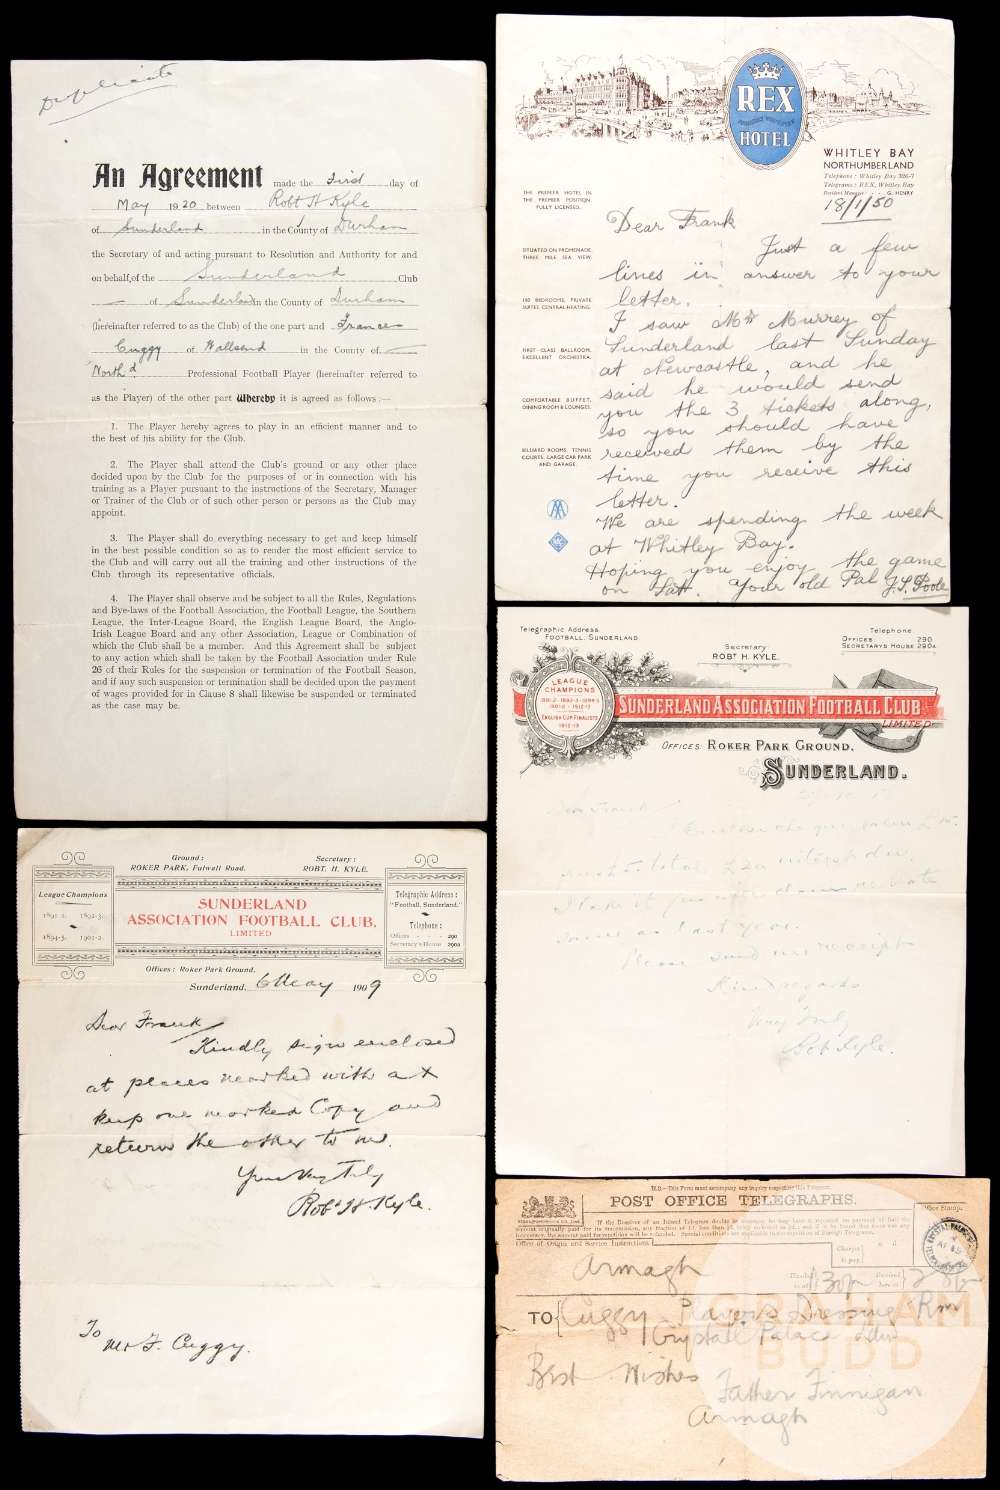 Duplicate
An Agreement made the First day of
May 1920 between Robt H Kyle
of Sunderland in the County of Durham
the Secretary of and acting pursuant to Resolution and Authority for and
on behalf of the Sunderland Club
of Sunderland in the County of Durham
(hereinafter referred to as the Club) of the one part and Francis
Cuggy of Wallsend in the County of
North'd Professional Football Player (hereinafter referred to
as the Player) of the other part Whereby it is agreed as follows:—
1. The Player hereby agrees to play in an efficient manner and to
the best of his ability for the Club.
2. The Player shall attend the Club's ground or any other place
decided upon by the Club for the purposes of or in connection with his
training as a Player pursuant to the instructions of the Secretary, Manager
or Trainer of the Club or of such other person or persons as the Club may
appoint.
3. The Player shall do everything necessary to get and keep himself
in the best possible condition so as to render the most efficient service to
the Club and will carry out all the training and other instructions of the
Club through its representative officials.
4. The Player shall observe and be subject to all the Rules, Regulations
and Bye-laws of the Football Association, the Football League, the Southern
League, the Inter-League Board, the English League Board, the Anglo-
Irish League Board and any other Association, League or Combination of
which the Club shall be a member. And this Agreement shall be subject
to any action which shall be taken by the Football Association under Rule
26 of their Rules for the suspension or termination of the Football Season,
and if any such suspension or termination shall be decided upon the payment
of wages provided for in Clause 8 shall likewise be suspended or terminated
as the case may be.
REX
HOTEL
WHITLEY BAY
NORTHUMBERLAND
Telephone: Whitley Bay 326-7
Telegrams: REX, Whitley Bay
Resident Manager G. HENRY
18/1/50
THE PREMIER HOTEL IN
THE PREMIER POSITION.
FULLY LICENSED.
SITUATED ON PROMENADE
THREE MILE SEA VIEW.
150 BEDROOMS, PRIVATE
SUITES, CENTRAL HEATING.
FIRST CLASS BALLROOM,
EXCELLENT ORCHESTRA.
COMFORTABLE BUFFET,
DINING ROOM & LOUNGES.
BILLIARD ROOMS, TENNIS
COURTS, LARGE CAR PARK
AND GARAGE.
AA
RAC
Dear Frank
Just a few
lines in answer to your
letter.
I saw Mr Murrey of
Sunderland last Sunday
at Newcastle, and he
said he would send
you the 3 tickets along,
so you should have
received them by the
time you receive this
letter.
We are spending the week
at Whitley Bay.
Hoping you enjoy the game
on Satt. Your old Pal J.S. Poole
Telegraphic Address
FOOTBALL, SUNDERLAND
Secretary
ROBT H. KYLE.
Telephone.
OFFICES 290
SECRETARY'S HOUSE 290A
LEAGUE
CHAMPIONS
1891-2 1892-3 1894-5
1901-2 1912-13
ENGLISH CUP FINALISTS
1912-13
SUNDERLAND ASSOCIATION FOOTBALL CLUB
LIMITED
OFFICES ROKER PARK GROUND,
SUNDERLAND.
Dear Frank
total £20
as last year.
Please send me receipt
Kind regards
Very truly
Bob Kyle.
Ground:
ROKER PARK, Fulwell Road.
Secretary:
ROBT. H. KYLE.
League Champions
1891-2. 1892-3.
1894-5. 1901-2.
SUNDERLAND
ASSOCIATION FOOTBALL CLUB,
LIMITED
Telegraphic Address:
"Football, Sunderland."
Telephone:
Offices 290
Secretary's House 290a
Offices: Roker Park Ground.
Sunderland, 6 May 1909
Dear Frank
Kindly sign enclosed
at places marked with a x
keep one marked Copy and
return the other to me.
Yours Very Truly
Robt H. Kyle.
To
Mr F. Cuggy.
N.B.—This Form must accompany any inquiry respecting this Telegram.
POST OFFICE TELEGRAPHS.
Office Stamp.
If the Receiver of an Inland Telegram doubts its accuracy, he may have it repeated on payment of half the
Office of Origin and Service Instructions
Charges
to pay
Armagh
TO Cuggy Player's Dressing Rm
Crystal Palace Ldn
Best Wishes
Father Finnigan
Armagh
GRAHAM
BUDD